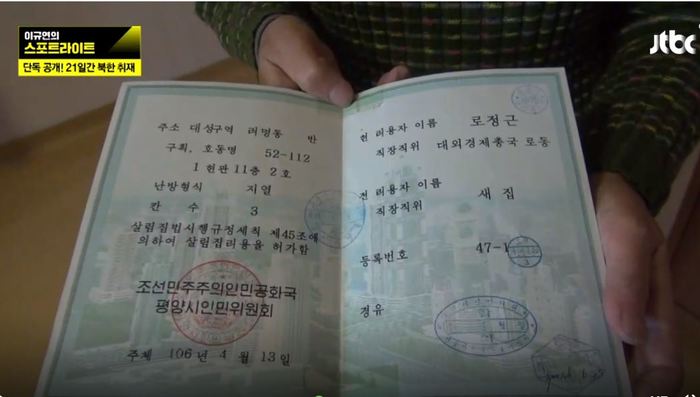 이규연의
스포트라이트
단독 공개! 21일간 북한 취재
jtbc
주소 대성구역 려명동 반
구획, 호동명 52-112
1 현관 11층 2호
난방형식 지열
칸 수 3
살림집법시행규정세칙 제45조에
의하여 살림집리용을 허가함
조선민주주의인민공화국
평양시인민위원회
주체 106년 4월 13일
현 리용자 이름 로정근
직장직위 대외경제총국 로동
전 리용자 이름 새집
직장직위
등록번호 47-1
경유